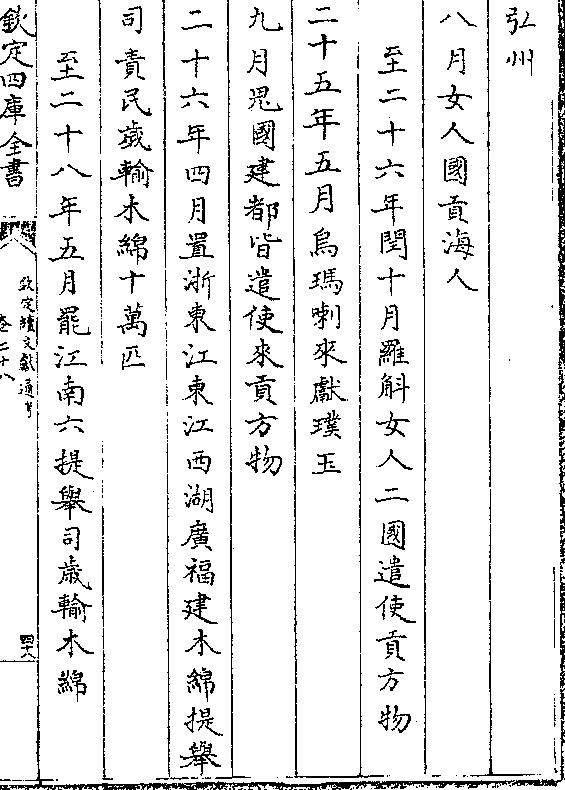 弘州
八月女人國貢海人
至二十六年閏十月羅斛女人二國遣使貢方物
二十五年五月烏瑪喇來獻璞玉
九月兕國建都皆遣使來貢方物
二十六年四月置浙東江東江西湖廣福建木綿提舉
司責民歲輸木綿十萬匹
至二十八年五月罷江南六提舉司歲輸木綿
欽定四庫全書
欽定續文獻通考
卷二十八
四十八